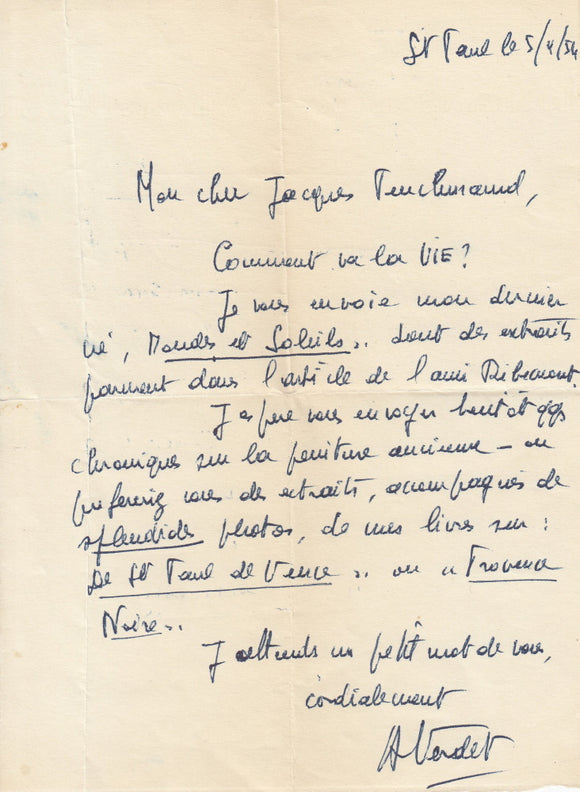 St Paul le 5/4/54
Mon cher Jacques
Comment va la VIE ?
Je vous envoie mon dernier
né, Mondes et Soleils .. dont des extraits
parurent dans l'article de l'ami Ribemont.
J'espère vous envoyer bientôt qqs
chroniques sur la peinture ancienne – ou
préférez vous des extraits, accompagnés de
splendides photos, de mes livres sur :
De St Paul de Vence .. ou " Provence
Noire ..
J'attends un petit mot de vous,
cordialement
A Verdet